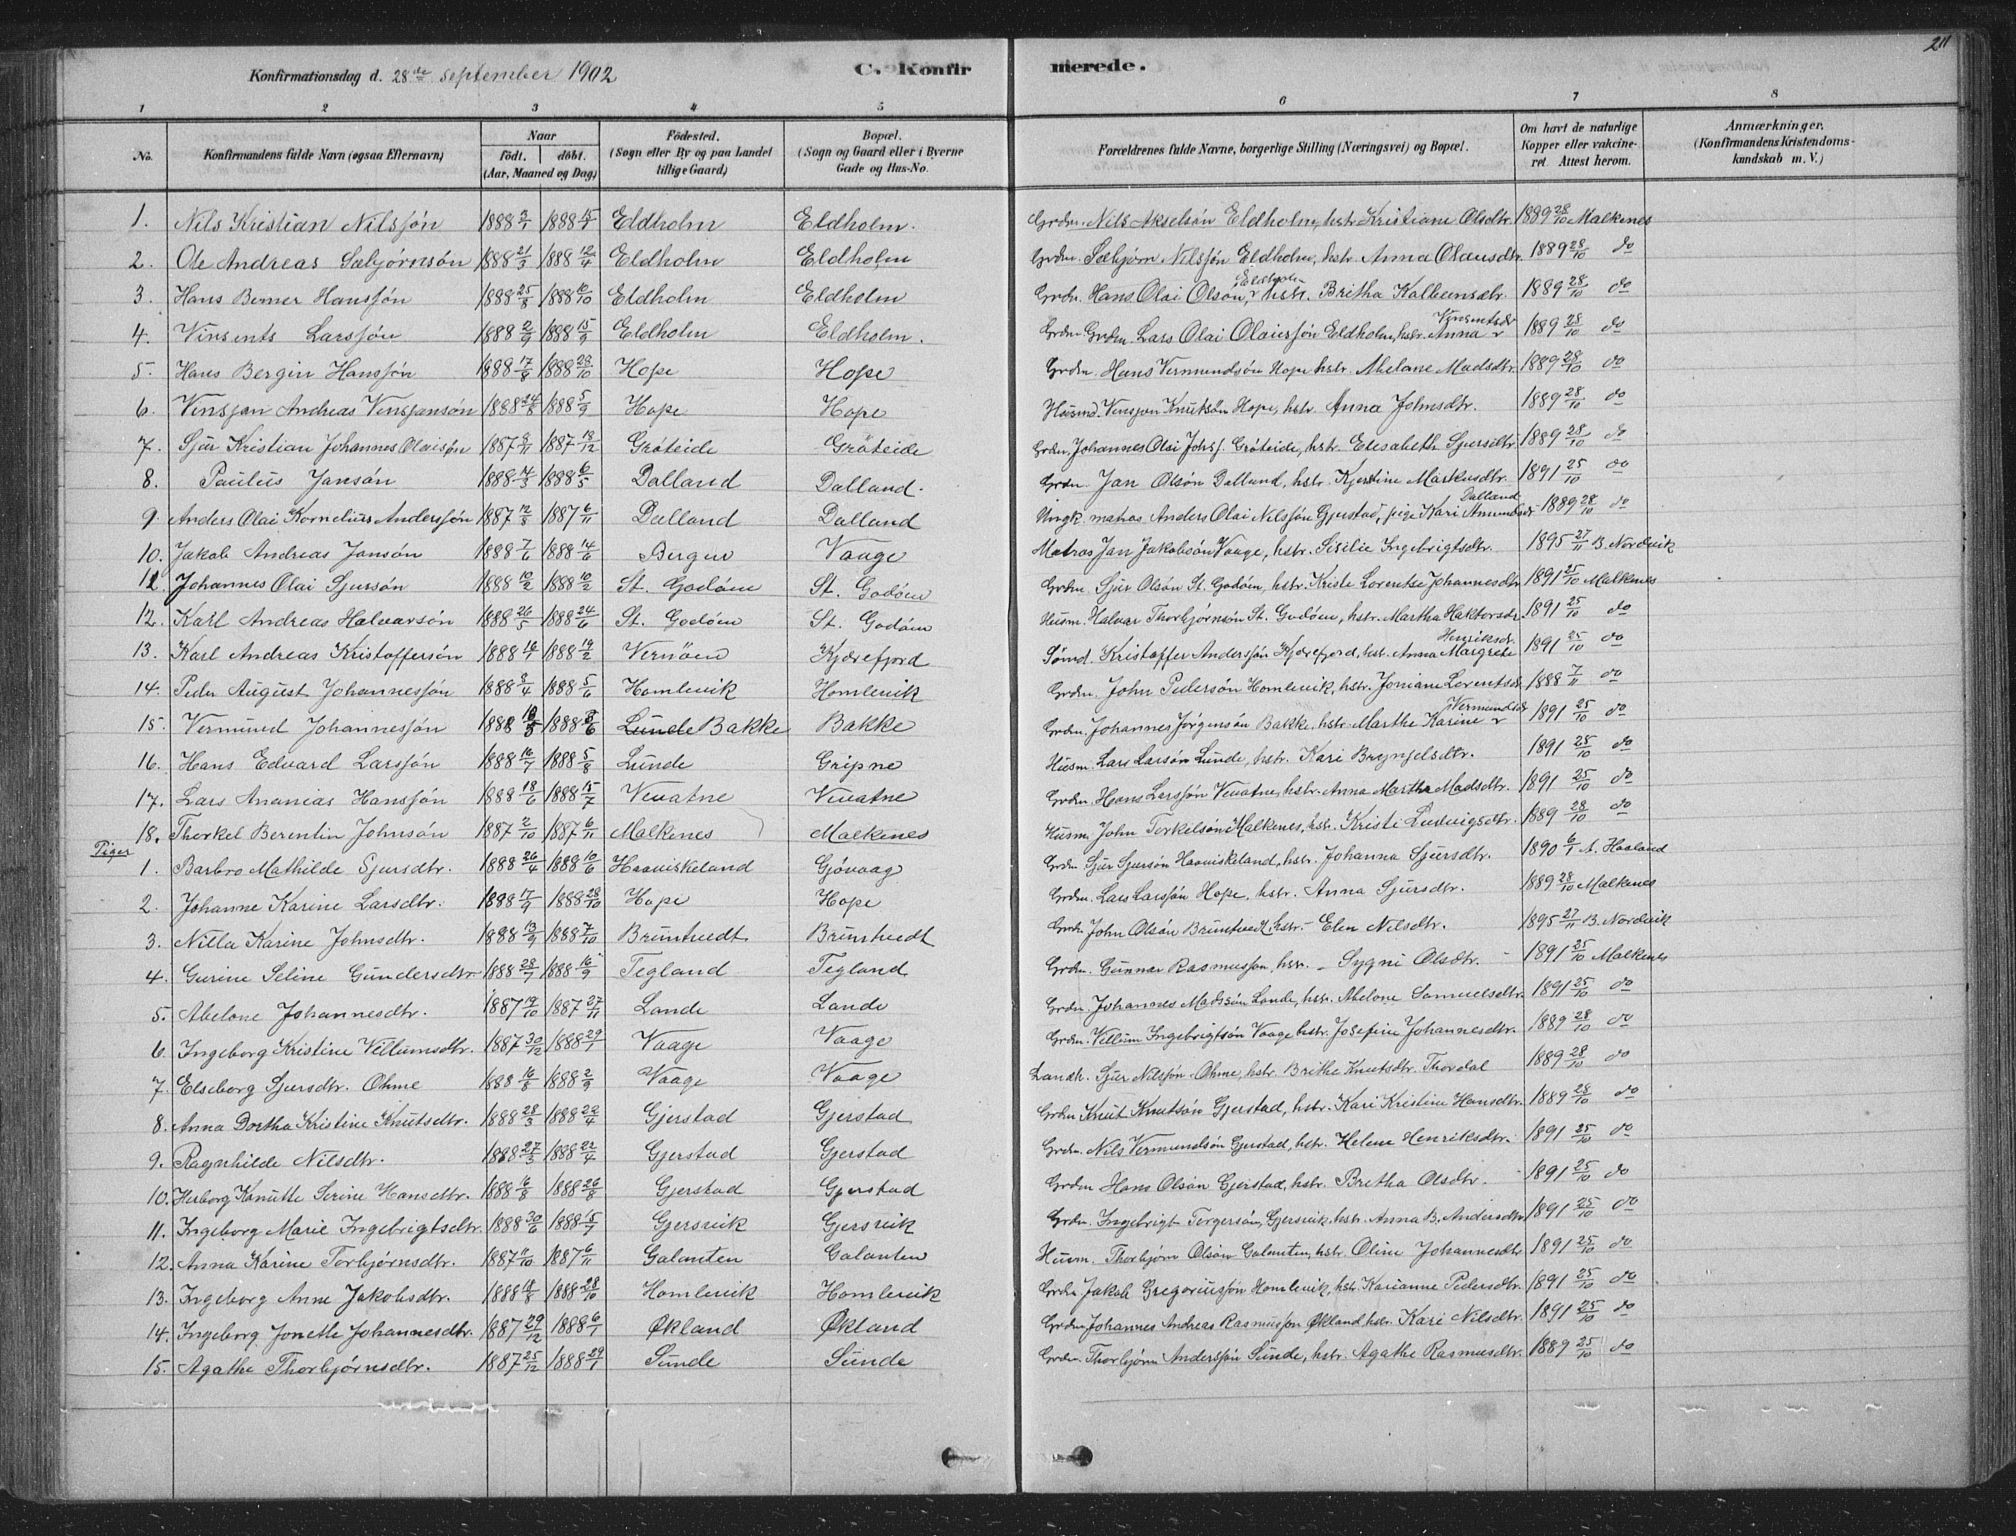 211
Konfirmationsdag d. 28de September 1902 C. Konfir merede.
1 2 3 4 5 6 7 8
No. Konfirmandens fulde Navn (ogsaa Efternavn) Naar födt. döbt. (Aar, Maaned og Dag) Födested. (Sogn eller By og paa Landet tillige Gaard) Bopæl. (Sogn og Gaard eller i Byerne Gade og Hus-No. Forældrenes fulde Navne, borgerlige Stilling (Næringsvei) og Bopæl. Om havt de naturlige Kopper eller vakcineret. Attest herom. Anmærkninger. (Konfirmandens Kristendomskundskab m. V.)
1. Nils Kristian Nilssøn 1888 1888 Eldholm Eldholm. Grdm. Nils Akselsøn Eldholm, hstr. Kristiane Olsdtr. 1889 28/10 Malkenes
2. Ole Andreas Sæbjørnsøn 1888 21/3 1888 12/4 Eldholm Eldholm Grdm. Sæbjørn Nilssøn Eldholm, hstr. Anna Olausdtr. 1889 28/10 do
3. Hans Berner Hanssøn 1888 25/8 1888 10/10 Eldholm Eldholm Grdm. Hans Olai Olsøn Eldholm, hstr. Britha Kolbensdtr. 1889 28/10 do
4. Vinsents Larssøn 1888 2/9 1888 15/9 Eldholm Eldholm. Grdm. Grdm. Lars Olai Olaiessøn Eldholm, hstr. Anna Vinsentsdr 1889 28/10 do
5. Hans Bergin Hanssøn 1888 17/8 1888 28/10 Hope Hope Grdm. Hans Vermundsøn Hope hstr. Abelone Madsdtr. 1889 28/10 do
6. Vinsjan Andreas Vinsjansøn 1888 24/8 1888 5/9 Hope Hope Husmd. Vinsjan Knutsøn Hope, hstr. Anna Johnsdtr. 1889 28/10 do
7. Sjur Kristian Johannes Olaisøn 1887 9/11 1887 18/12 Grøteide Grøteide Grdm. Johannes Olai Johs. Grøteide, hstr. Elisabeth Sjursdtr. 1889 28/10 do
8. Paulus Jansøn 1888 14/3 1888 6/5 Dalland Dalland. Grdm. Jan Olsøn Dalland, hstr. Kjestine Markusdtr. 1891 25/10 do
9. Anders Olai Kornelius Anderssøn 1887 12/8 1887 6/11 Dalland Dalland Ungk. matros Anders Olai Nilssøn Gjerstad, pige Kari Amundsdr Dalland 1889 28/10 do
10. Jakob Andreas Jansøn 1888 7/6 1888 14/6 Berger Vaage Matros Jan Jakobsøn Vaage, hstr. Sisilie Ingebrigtsdtr. 1895 27/11 B. Nordvik
11. Johannes Olai Sjursøn 1888 10/2 1888 10/2 St. Godøen St. Godøen Grdm. Sjur Olsøn St. Godøen, hstr. Kriste Lorentse Johannesdtr 1891 25/10 Malkenes
12. Karl Andreas Halvarsøn 1888 26/5 1888 24/6 St. Godøen St. Godøen Husm. Halvar Thorbjørnsøn St. Godøen, hstr. Martha Haktorsdr. 1891 25/10 do
13. Karl Andreas Kristoffersøn 1888 16/1 1888 19/2 Vernøen Kjærefjord Sømd. Kristoffer Anderssøn Kjærefjord, hst. Anna Margrete Henriksdr. 1891 25/10 do
14. Peder August Johannessøn 1888 8/4 1888 5/6 Homlevik Homlevik Grdm. John Pedersøn Homlevik, hstr. Joniane Lorentsdr. 1888 7/11 do
15. Vermund Johannessøn 1888 1888 Lunde Bakke Bakke Grdm. Johannes Jørgensøn Bakke, hstr. Marthe Karine Vermundsdr 1891 25/10 do
16. Hans Edvard Larssøn 1888 16/7 1888 5/8 Lunde Gripne Husm. Lars Larsøn Lunde, hstr. Kari Brynjelsdtr. 1891 25/10 do
17. Lars Ananias Hanssøn 1888 18/6 1888 15/7 Vevatne Vevatne Grdm. Hans Larssøn Vevatne, hstr. Anna Martha Madsdtr. 1891 25/10 do
18. Thorkel Berentin Johnsøn 1887 2/10 1887 6/11 Malkenes Malkenes Husm. John Torkelsøn Malkenes, hstr. Kristi Ludvigsdtr. 1889 28/10 do
Piger
1. Barbro Mathilde Sjursdtr. 1888 26/4 1888 10/6 Haaviskeland Gjøvaag Grdm. Sjur Sjursøn Haaviskeland, hstr. Johanna Sjursdtr. 1890 6/1 A. Haaland
2. Johanne Karine Larsdtr. 1888 17/9 1888 28/10 Hope Hope Grdm. Lars Larssøn Hope, hstr. Anna Sjursdtr. 1889 28/10 Malkenes
3. Nilla Karine Johnsdtr. 1888 13/9 1888 7/10 Bruntvedt Bruntvedt Grdm. John Olsøn Bruntvedt, hstr. Elen Nilsdtr. 1895 27/11 B. Nordvik
4. Gurine Seline Gundersdtr 1888 28/7 1888 16/9 Tegland Tegland Grdm. Gunnar Rasmusson, hstr. Sygni Olsdtr. 1891 25/10 Malkenes
5. Abelone Johannesdtr. 1887 19/10 1887 27/11 Lande Lande Grdm. Johannes Madssøn Lande, hstr. Abelone Samuelsdtr. 1891 25/10 do
6. Ingeborg Kristine Villumsdtr. 1887 30/12 1888 29/1 Vaage Vaage Grdm. Villum Ingebrigtsøn Vaage hstr. Josefine Johannesdtr. 1889 28/10 do
7. Elseborg Sjursdtr. Ohme 1888 16/8 1888 2/9 Vaage Vaage Landh. Sjur Nilssøn Ohme, hstr. Brithe Knutsdtr. Thordal 1889 28/10 do
8. Anna Dortha Kristine Knutsdtr. 1888 28/3 1888 22/4 Gjerstad Gjerstad Grdm. Knut Knutsøn Gjerstad, hstr. Kari Kristine Hansdtr. 1889 28/10 do
9. Ragnhilde Nilsdtr. 1888 27/3 1888 22/4 Gjerstad Gjerstad Grdm. Nils Vermundsøn Gjerstad, hstr. Helene Henriksdtr. 1891 25/10 do
10. Herborg Kanutte Serine Hansdtr. 1888 6/8 1888 26/8 Gjerstad Gjerstad Grdm. Hans Olsøn Gjerstad, hstr. Bretha Olsdtr. 1891 25/10 do
11. Ingeborg Marie Ingebrigtsdtr. 1888 30/6 1888 5/7 Gjersvik Gjersvik Grdm. Ingebrigt Torgersøn, Gjersvik, hstr. Anna B. Andersdtr 1891 25/10 do
12. Anna Karine Torbjørnsdtr. 1887 11/10 1887 6/11 Galanten Galanten Husm. Thorbjørn Olsøn Galanten, hstr. Oline Johannesdtr 1891 25/10 do
13. Ingeborg Anne Jakobsdtr. 1888 18/8 1888 28/10 Homlevik Homlevik Grdm. Jakob Gregoriussøn Homlevik, hstr. Karianne Pedersdtr. 1891 25/10 do
14. Ingeborg Jonette Johannesdtr. 1887 29/12 1888 6/1 Økland Økland Grdm. Johannes Andreas Rasmussøn Økland hstr. Kari Nilsdtr. 1891 25/10 do
15. Agathe Thorbjørnsdtr. 1887 25/12 1888 29/1 Sunde Sunde Grdm. Thorbjørn Anderssøn Sunde, hstr. Agathe Rasmusdtr. 1889 25/10 do